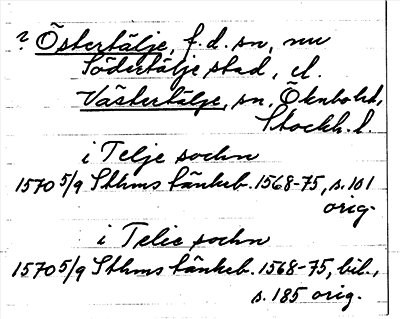 ? Östertälje, f.d. sn, nu
Södertälje stad, el.
Västertälje, sn, Öknebo hd,
Stockh. l.
i Telje sochn
1570 5/9 Sthms tänkeb. 1568-75, s. 101
orig.
i Telie sochn
1570 5/9 Sthms tänkeb. 1568-75, bil.,
s. 185 orig.